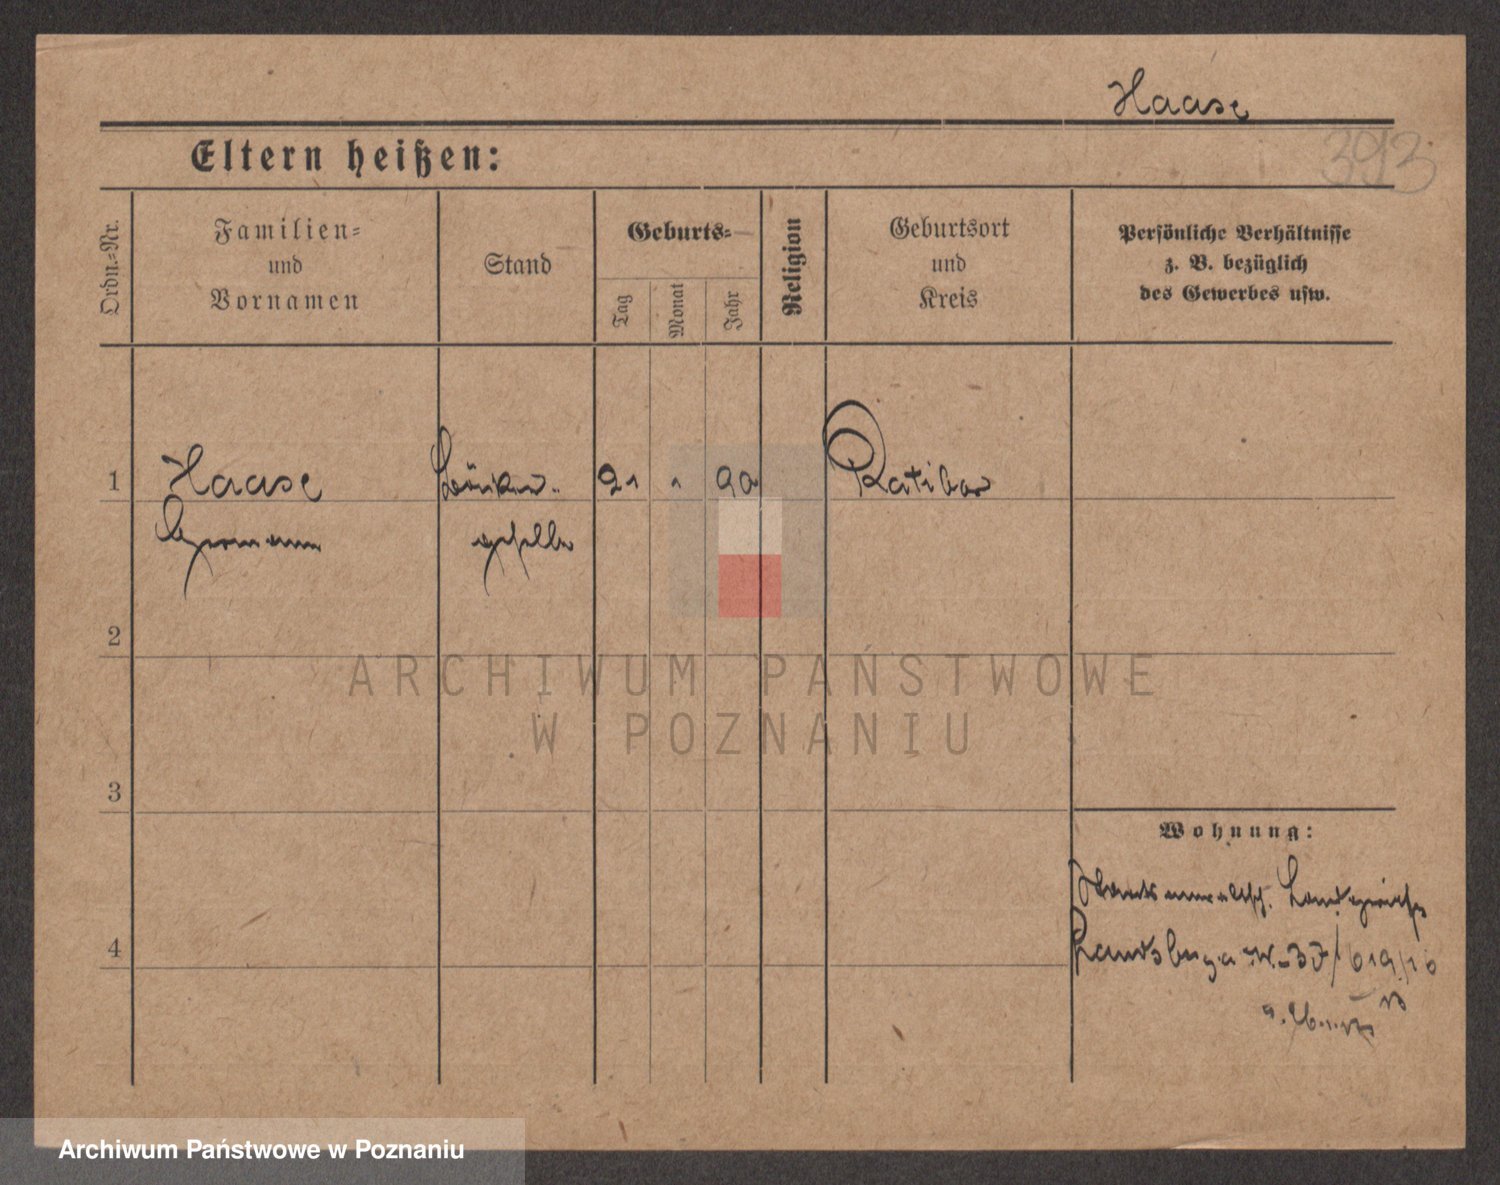 Haase
393
Eltern heißen:
Ordn.=Nr.
Familien=
und
Vornamen
Stand
Geburts=
Tag
Monat
Jahr
Religion
Geburtsort
und
Kreis
Persönliche Verhältnisse
z. B. bezüglich
des Gewerbes usw.
1 Haase Bäcker- 21 1 90 Ratibor
Hermann geselle
2
ARCHIWUM PAŃSTWOWE
W POZNANIU
3
Wohnung:
Staatsanwaltsch. Landgericht
4
Landsberg a. W. 619/10
Archiwum Państwowe w Poznaniu